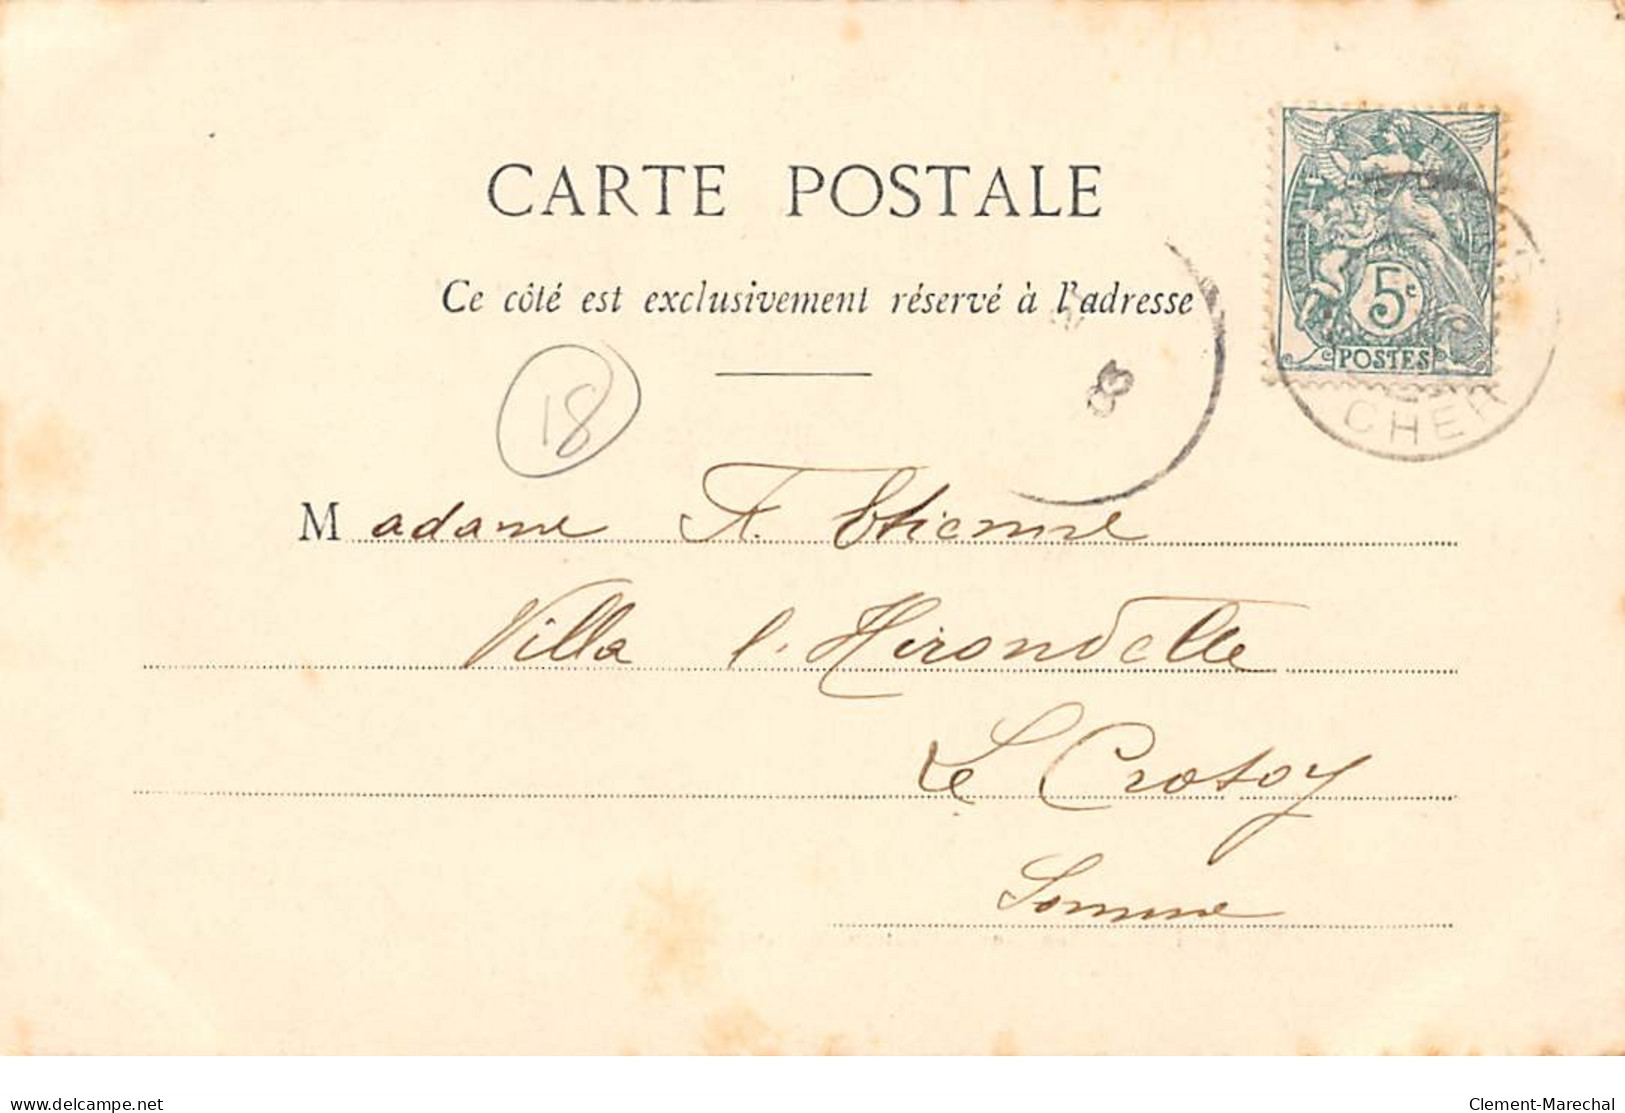 CARTE POSTALE
Ce côté est exclusivement réservé à l'adresse
RÉPUBLIQUE FRANÇAISE
5c
POSTES
CHER
18
Madame F. Etienne
Villa l'Hirondelle
Le Crotoy
Somme
delcampe.net
Clement-Marechal